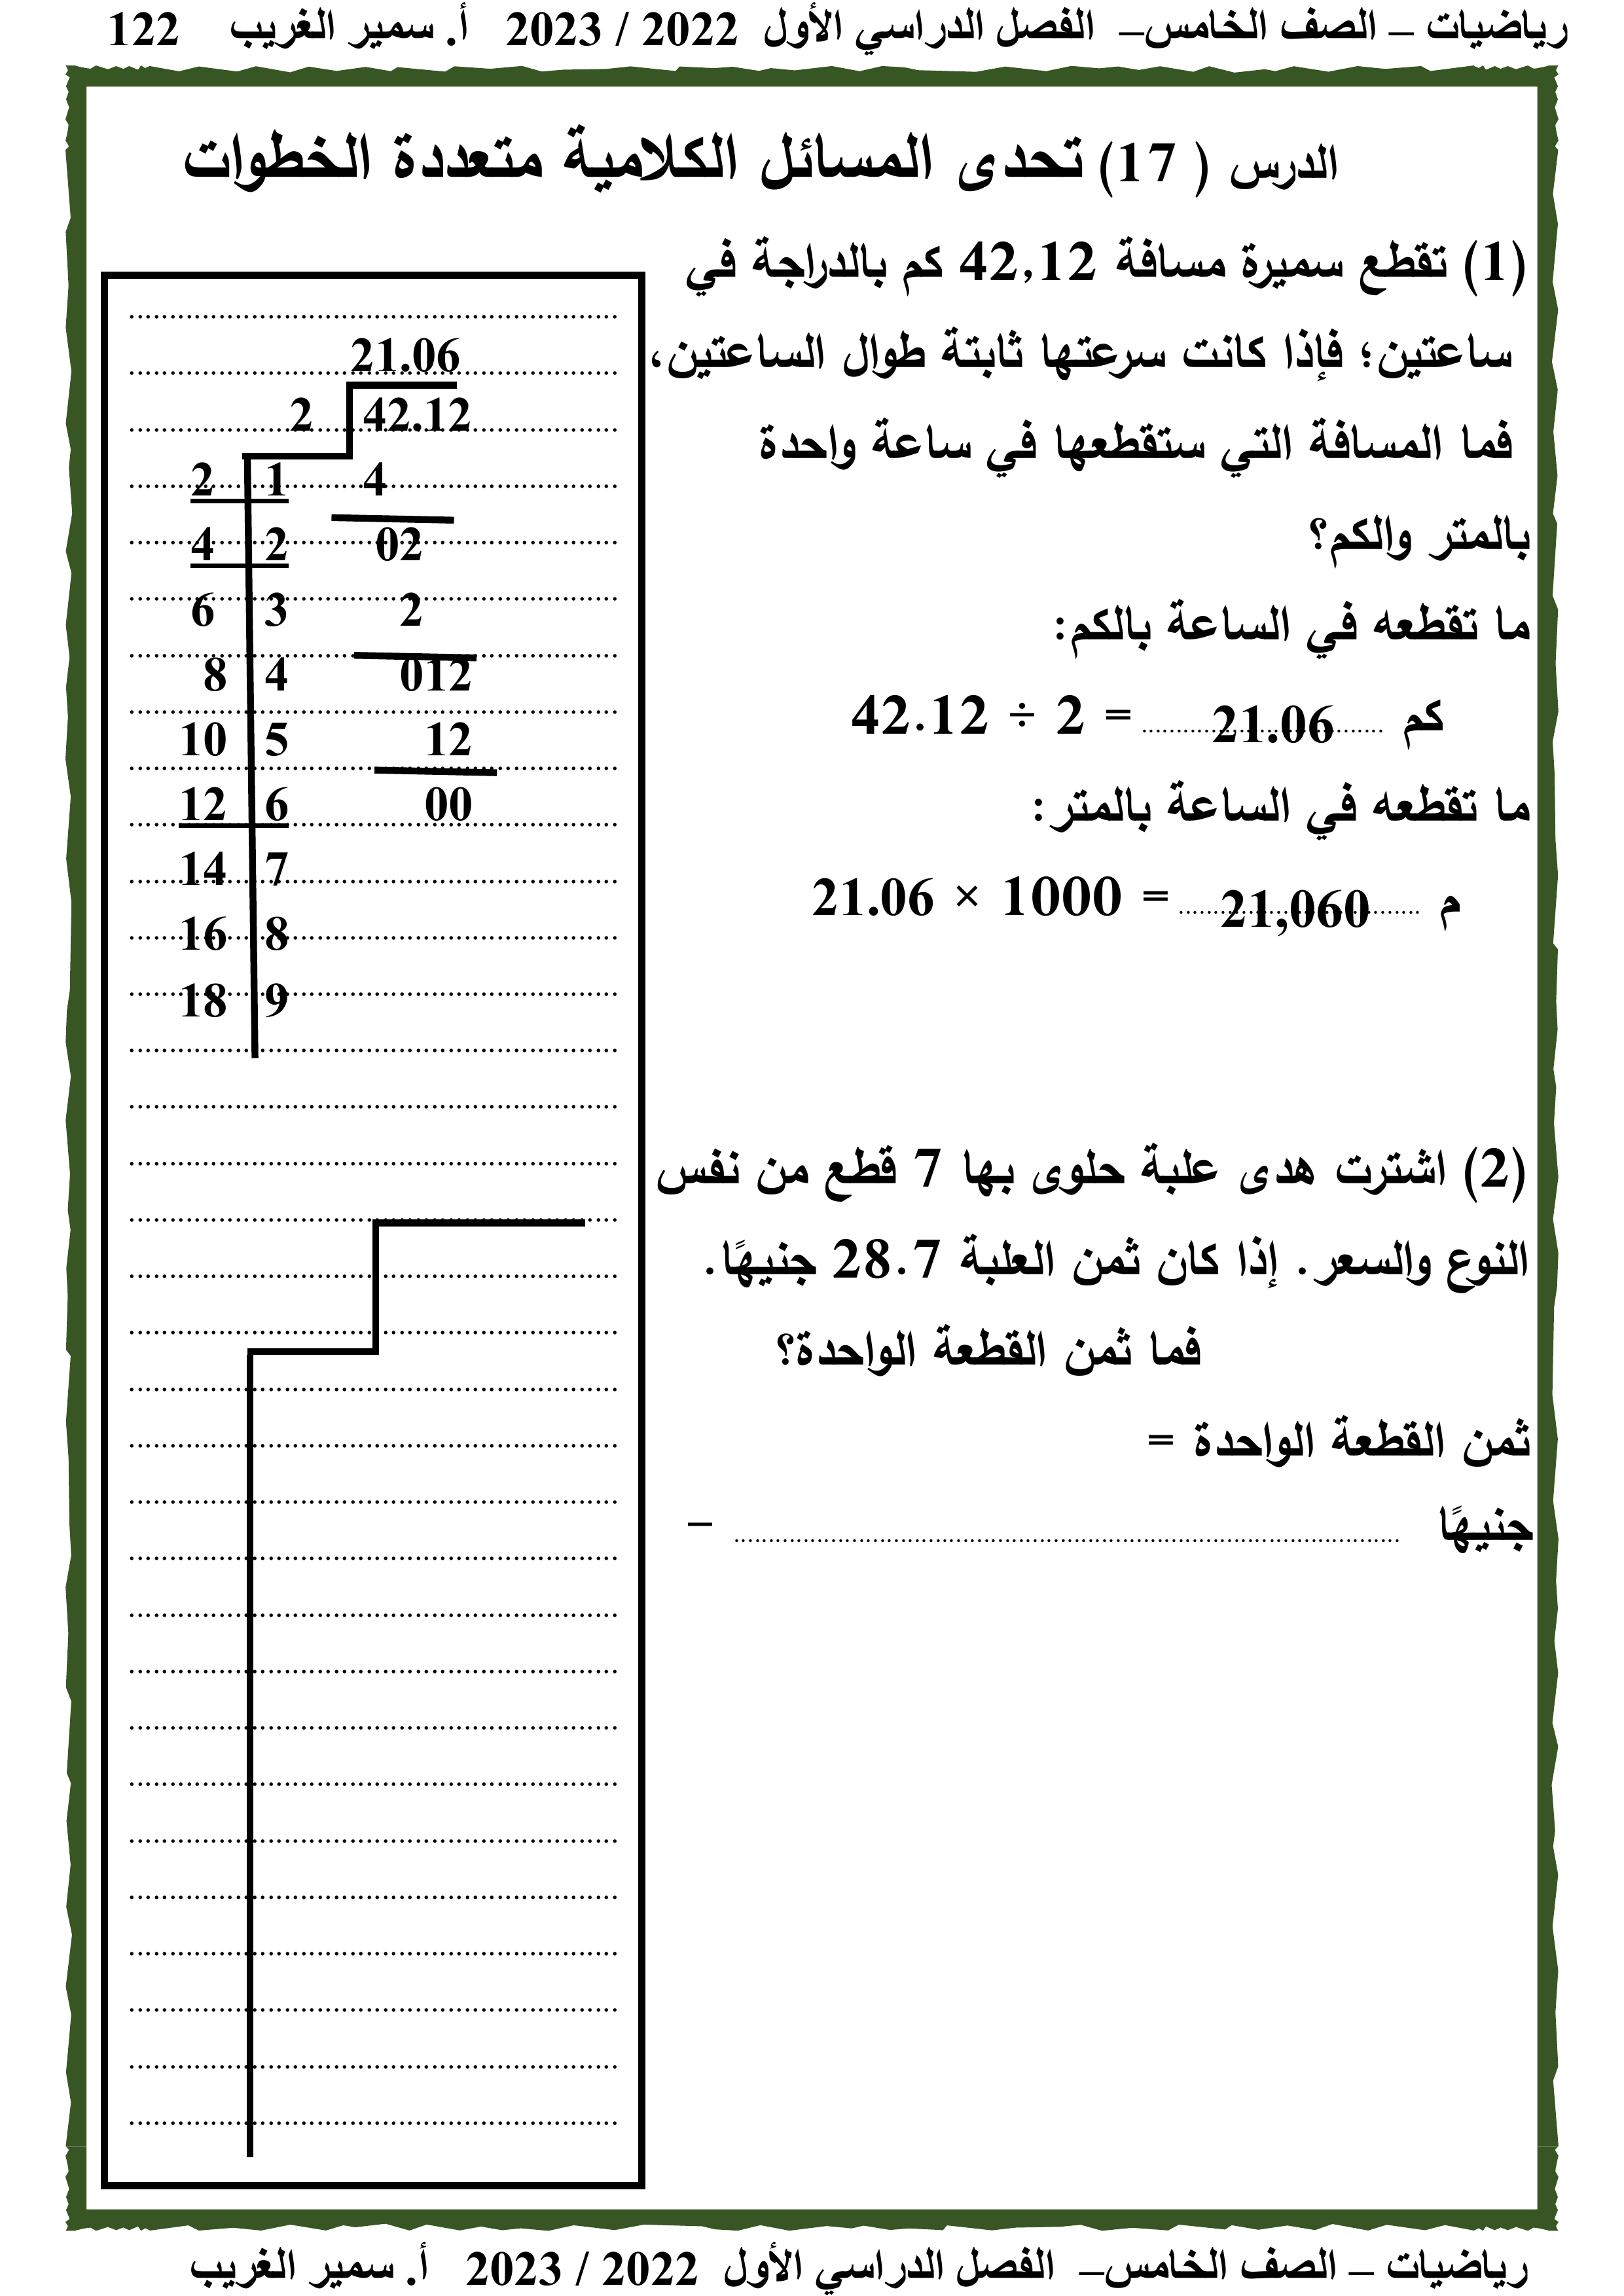 رياضيات – الصف الخامس– الفصل الدراسي الأول 2022 / 2023 أ. سمير الغريب 122
الدرس ( 17) تحدى المسائل الكلامية متعددة الخطوات
(1) تقطع سميرة مسافة 42,12 كم بالدراجة في
ساعتين؛ فإذا كانت سرعتها ثابتة طوال الساعتين،
فما المسافة التي ستقطعها في ساعة واحدة
بالمتر والكم؟
ما تقطعه في الساعة بالكم:
42.12 ÷ 2 = 21.06 كم
ما تقطعه في الساعة بالمتر:
21.06 × 1000 = 21,060 م
21.06
2 42.12
2 1 4
4 2 02
6 3 2
8 4 012
10 5 12
12 6 00
14 7
16 8
18 9
(2) اشترت هدى علبة حلوى بها 7 قطع من نفس
النوع والسعر. إذا كان ثمن العلبة 28.7 جنيهًا.
فما ثمن القطعة الواحدة؟
ثمن القطعة الواحدة =
جنيهًا ........................ –
رياضيات – الصف الخامس– الفصل الدراسي الأول 2022 / 2023 أ. سمير الغريب